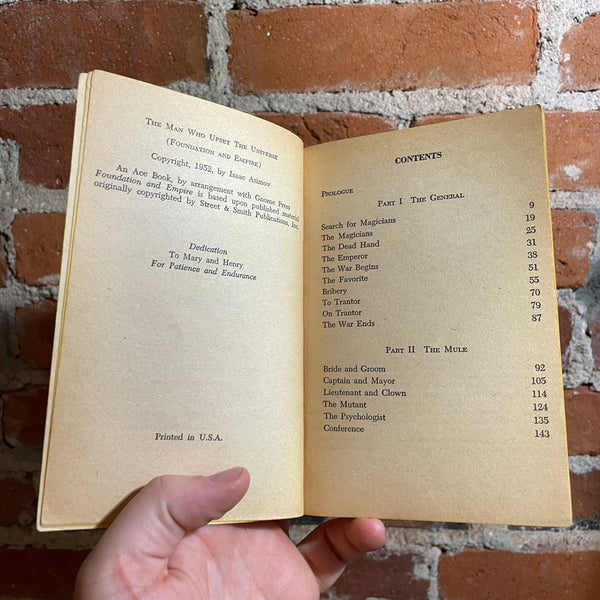 The Man Who Upset The Universe
(Foundation and Empire)
Copyright, 1952, by Isaac Asimov
An Ace Book, by arrangement with Gnome Press
Foundation and Empire is based upon published material
originally copyrighted by Street & Smith Publications, Inc.
Dedication
To Mary and Henry
For Patience and Endurance
Printed in U.S.A.
CONTENTS
Prologue
Part I The General
Search for Magicians 9
The Magicians 19
The Dead Hand 25
The Emperor 31
The War Begins 38
The Favorite 51
Bribery 55
To Trantor 70
On Trantor 79
The War Ends 87
Part II The Mule
Bride and Groom 92
Captain and Mayor 105
Lieutenant and Clown 114
The Mutant 124
The Psychologist 135
Conference 143